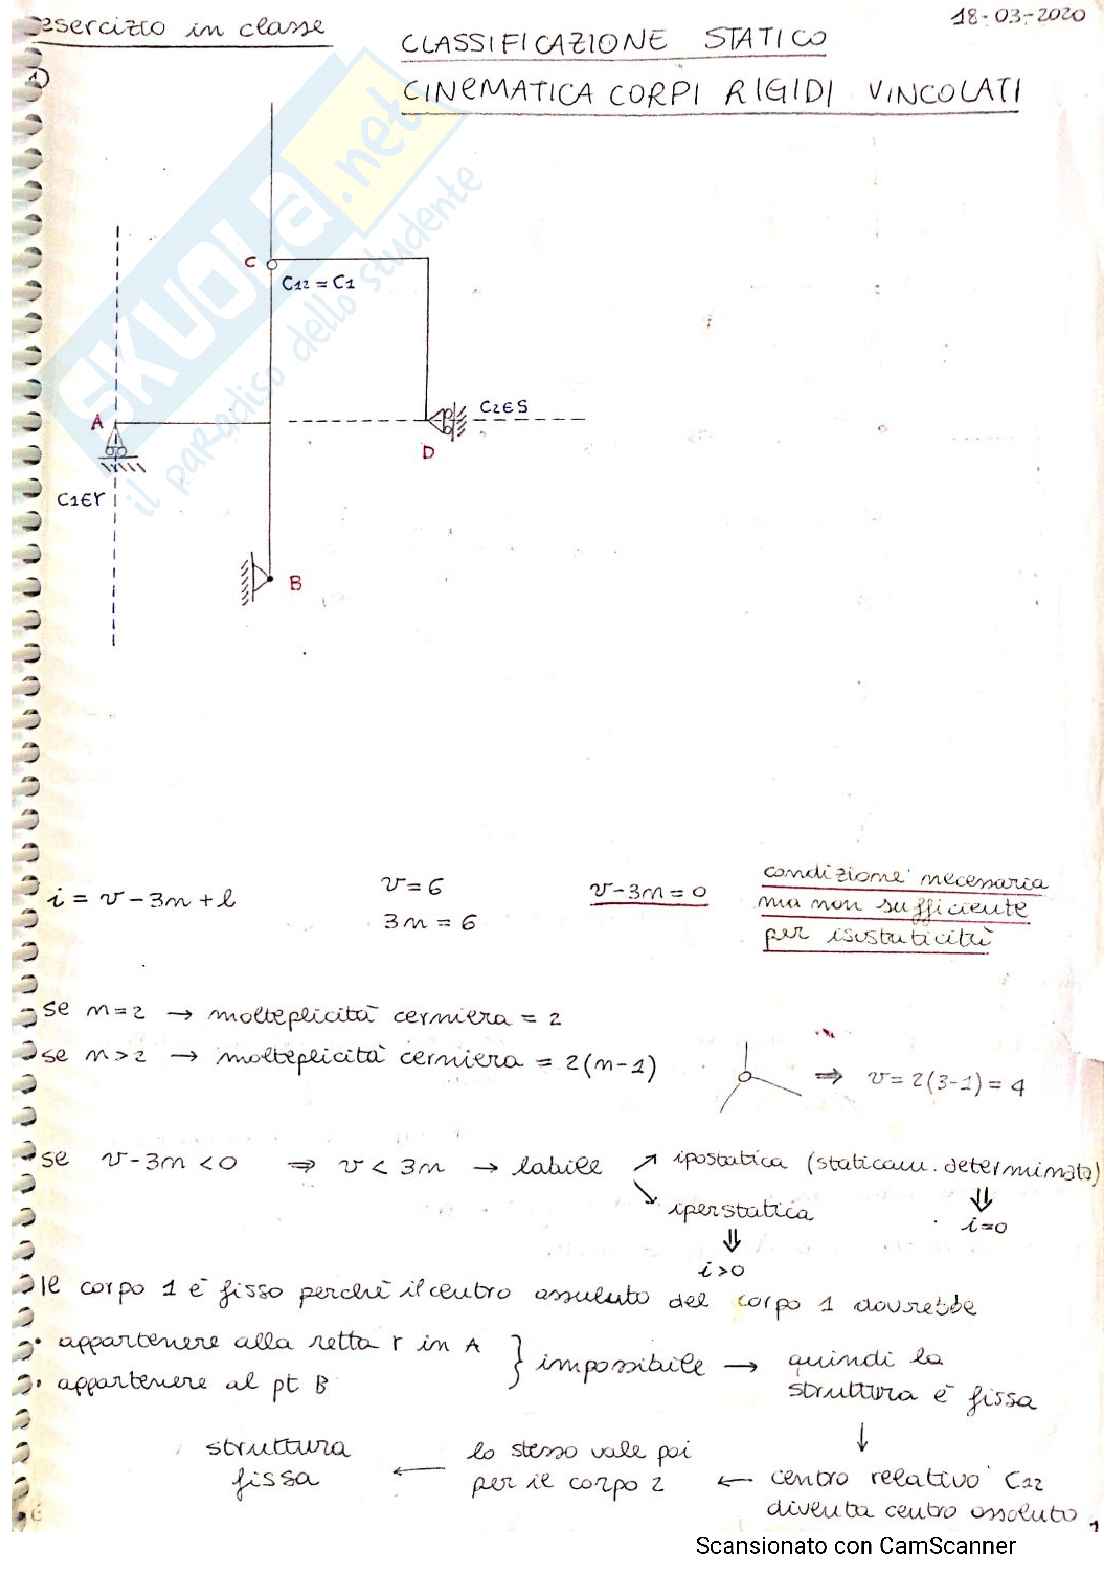 esercizio in classe
18-03-2020
CLASSIFICAZIONE STATICO
CINEMATICA CORPI RIGIDI VINCOLATI
1)
SKUOLA.net
il paradiso dello studente
C
C12 = C1
A
C2∈S
D
C1∈r
B
i = v - 3n + l
v = 6
3n = 6
v - 3n = 0
condizione necessaria
ma non sufficiente
per isostaticità
se n=2 → molteplicità cerniera = 2
se n>2 → molteplicità cerniera = 2(n-1)
⇒ v = 2(3-1) = 4
se v-3n<0 ⇒ v < 3n → labile ↗ ipostatica (staticam. determinata)
↘ iperstatica
⇓ i=0
⇓ i>0
Il corpo 1 è fisso perché il centro assoluto del corpo 1 dovrebbe
• appartenere alla retta r in A
• appartenere al pt B
} impossibile → quindi la
struttura è fissa
↓
centro relativo C12
diventa centro assoluto
← lo stesso vale poi
per il corpo 2
← struttura
fissa
1
Scansionato con CamScanner